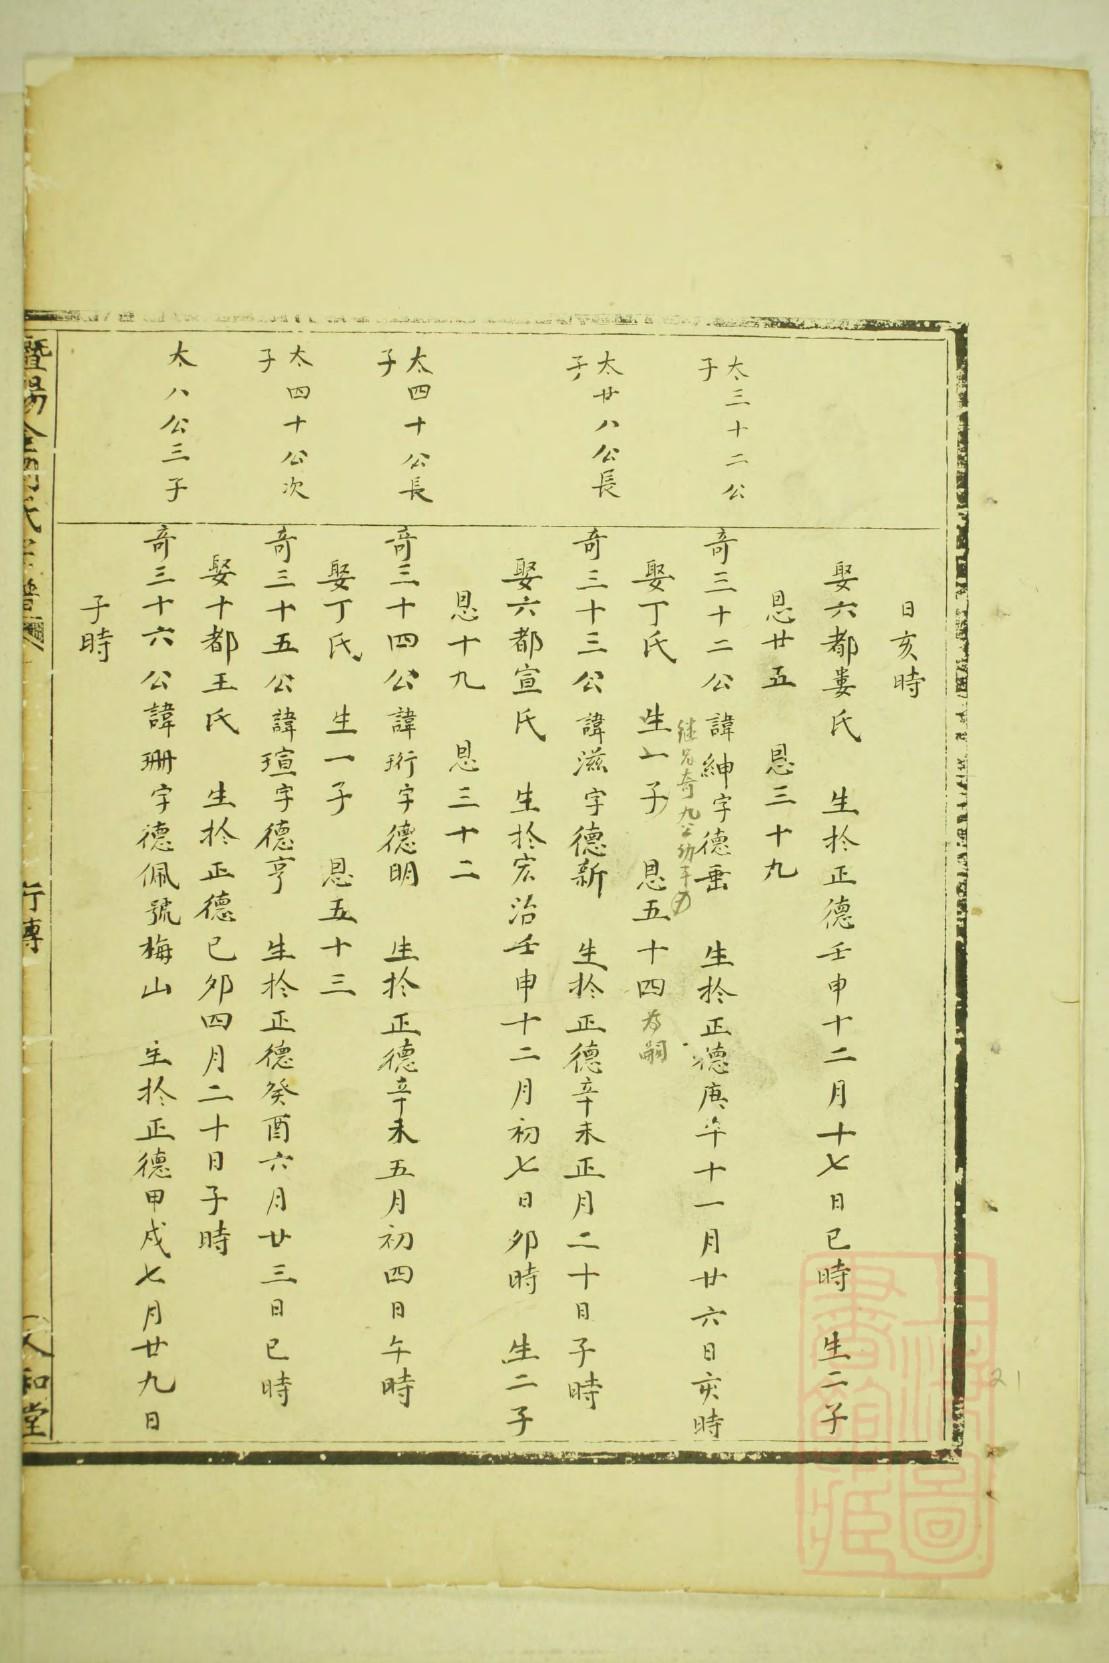 日亥時
娶六都婁氏　生於正德壬申十二月十七日巳時　生二子
恩廿五　恩三十九
太三十二公
子
奇三十二公諱紳字德垂　生於正德庚午十一月廿六日亥時
娶丁氏　生一子　恩五十四
為嗣
太廿八公長
子
奇三十三公諱滋字德新　生於正德辛未正月二十日子時
娶六都宣氏　生於宏治壬申十二月初七日卯時　生二子
恩十九　恩三十二
太四十公長
子
奇三十四公諱珩字德明　生於正德辛未五月初四日午時
娶丁氏　生一子　恩五十三
太四十公次
子
奇三十五公諱瑄字德亨　生於正德癸酉六月廿三日巳時
娶十都王氏　生於正德己卯四月二十日子時
太八公三子
奇三十六公諱珊字德佩號梅山　生於正德甲戌七月廿九日
子時
暨陽
氏宗譜
行傳
人和堂
上海圖
書館藏
21